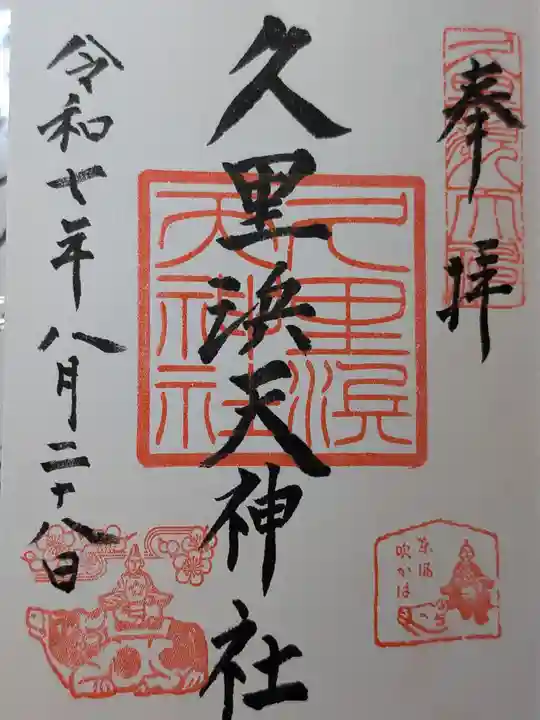 奉拝
久里浜天神社
久里浜天神社
令和七年八月二十八日
東風
吹かば